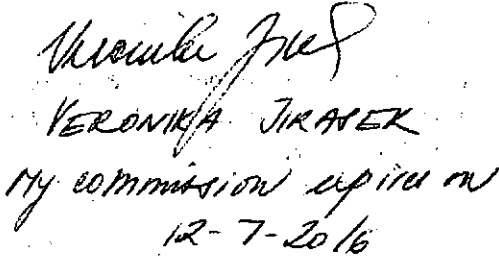 Veronika Jirasek
VERONIKA JIRASEK
My commission expires on
12-7-2016